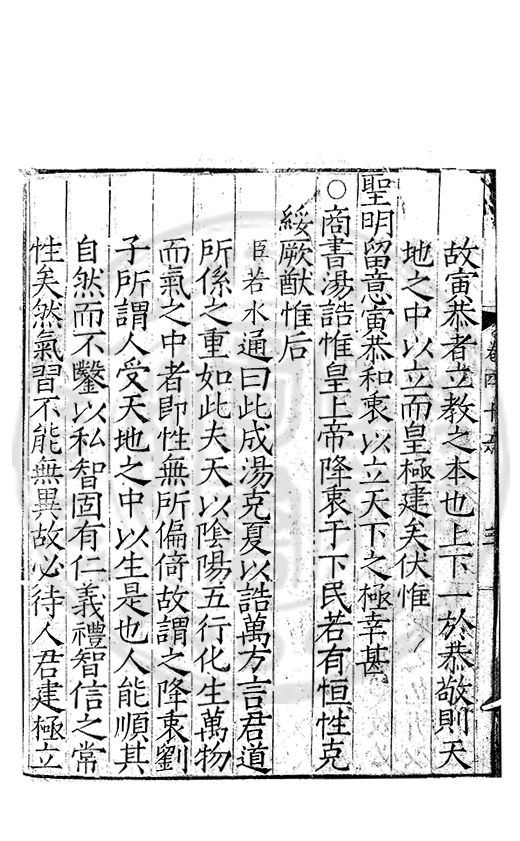 故寅恭者立教之本也上下一於恭敬則天
地之中以立而皇極建矣伏惟
聖明留意寅恭和衷以立天下之極幸甚
○商書湯誥惟皇上帝降衷于下民若有恒性克
綏厥猷惟后
臣若水通曰此成湯克夏以誥萬方言君道
所係之重如此夫天以陰陽五行化生萬物
而氣之中者即性無所偏倚故謂之降衷劉
子所謂人受天地之中以生是也人能順其
自然而不鑿以私智固有仁義禮智信之常
性矣然氣習不能無異故必待人君建極立